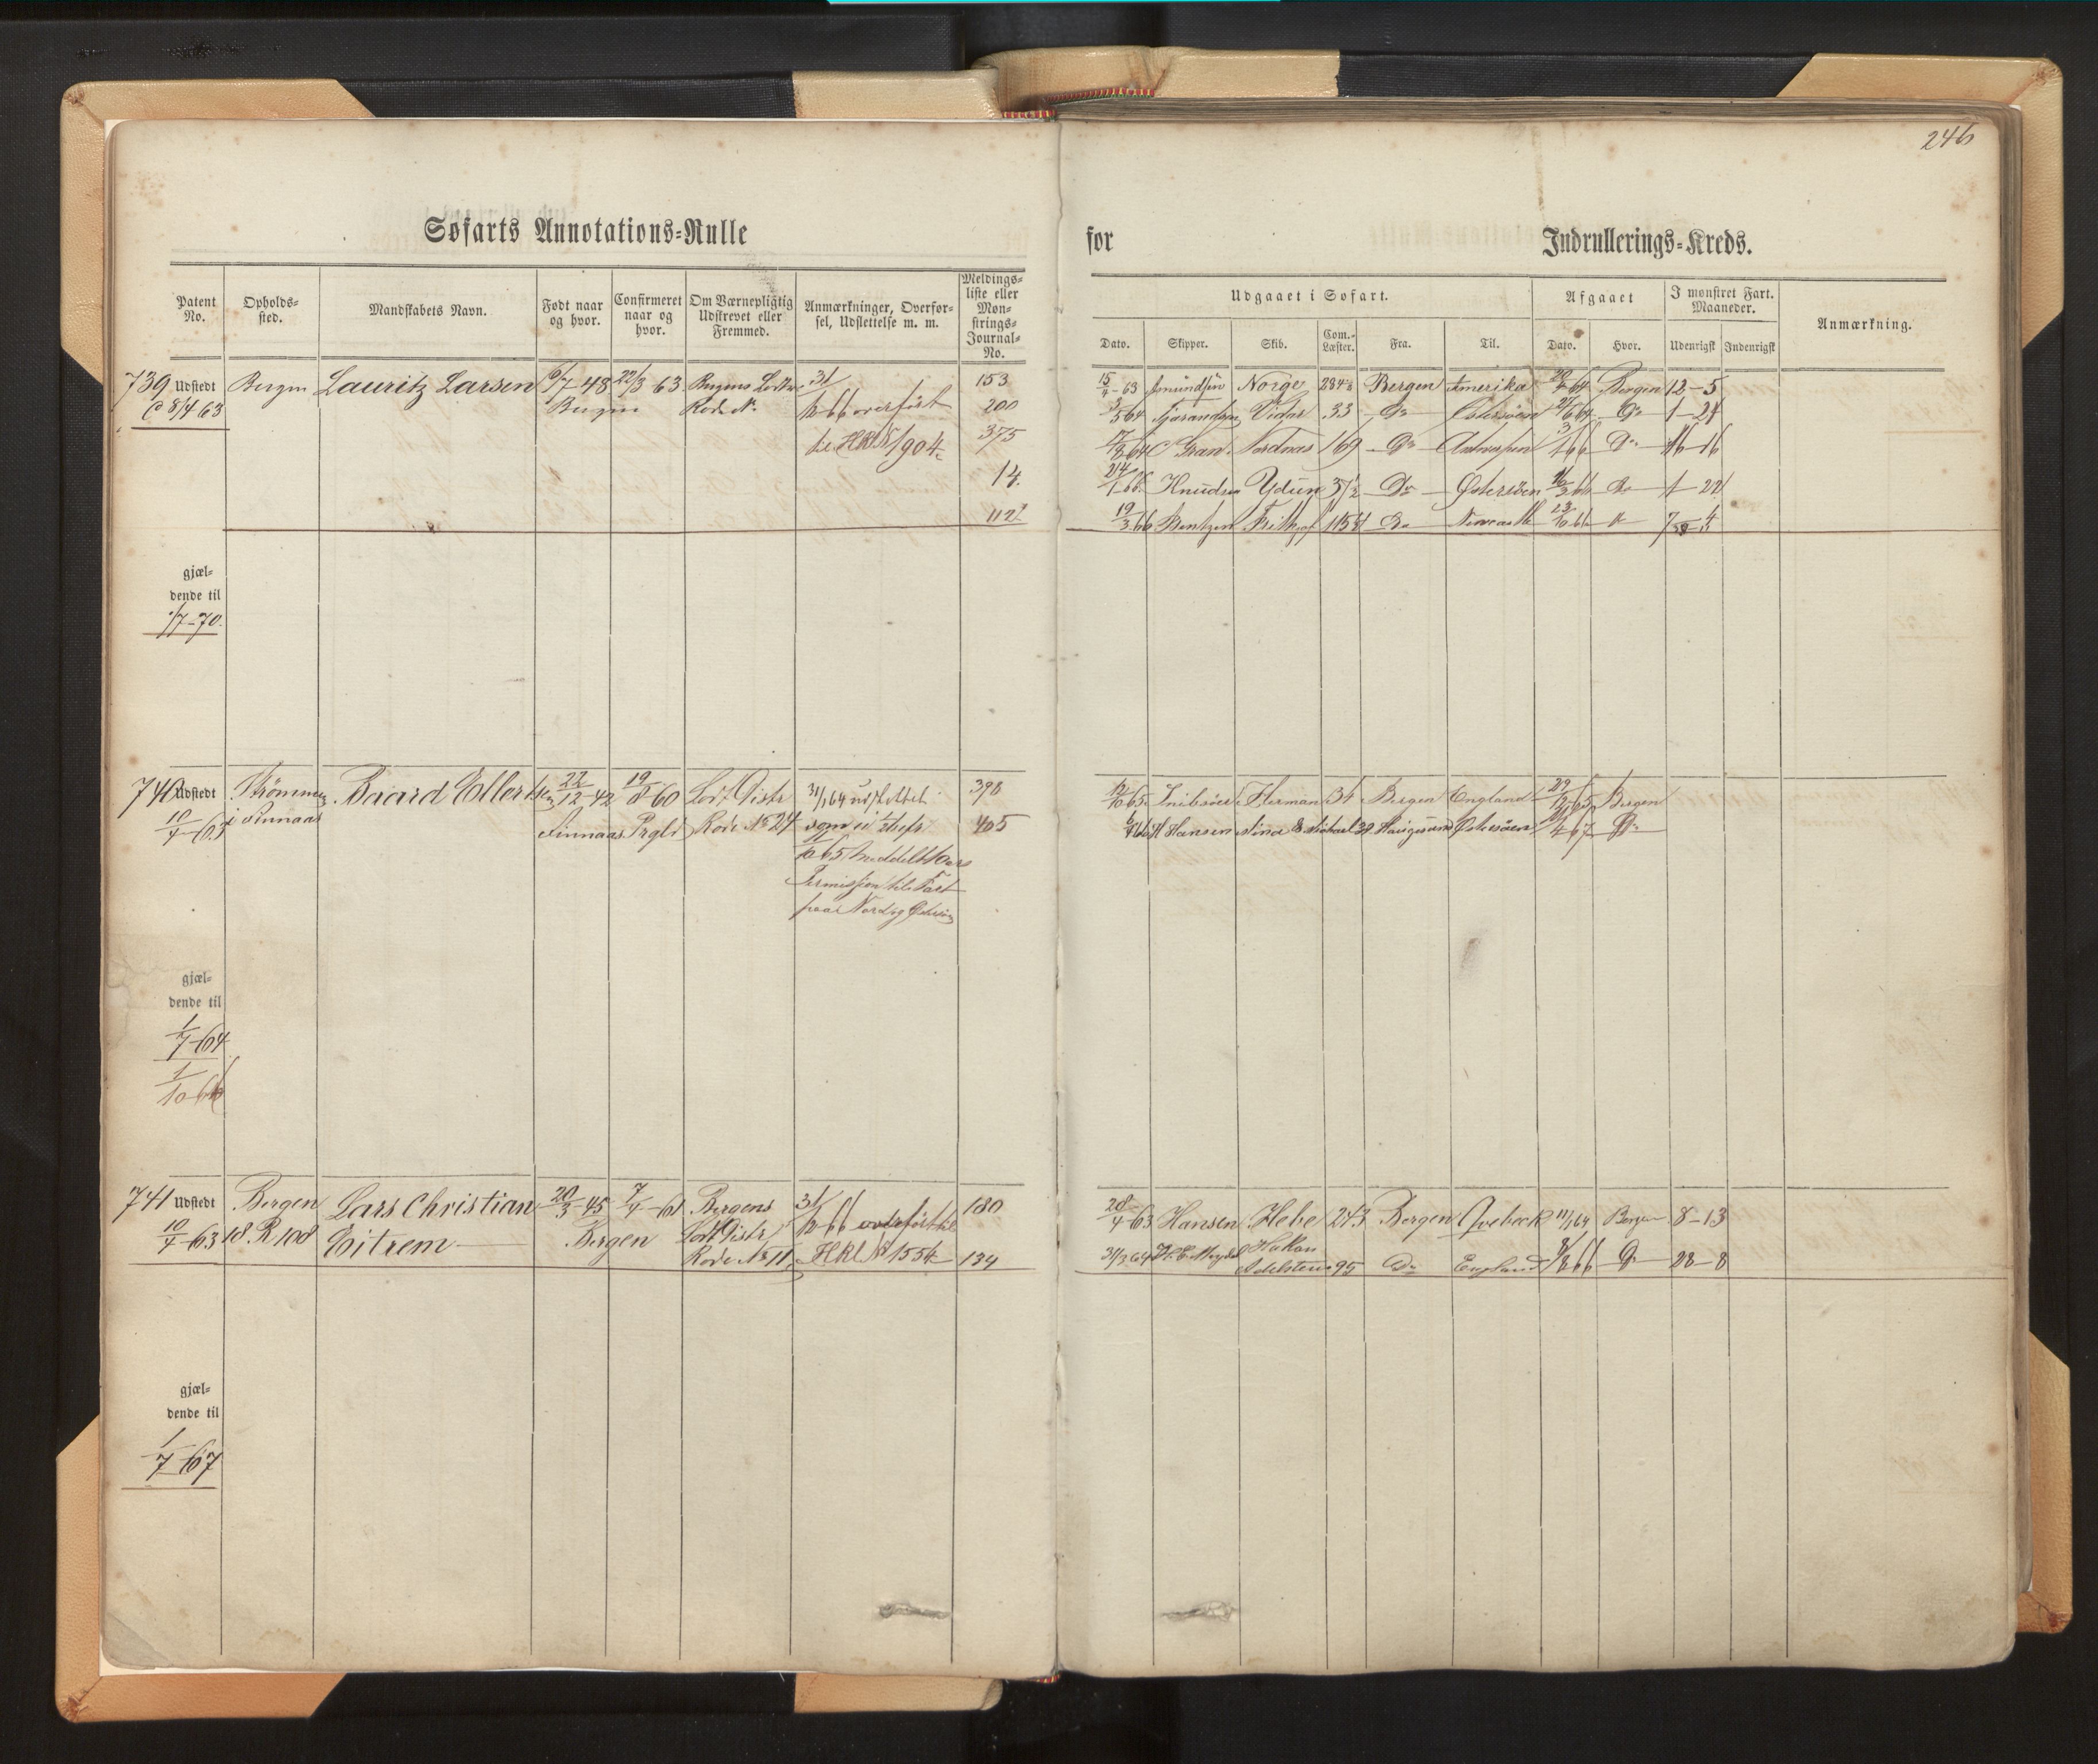 246
Søfarts Annotations-Rulle
for
Indrullerings-Kreds.
Patent No.
Opholds-sted.
Mandskabets Navn.
Født naar og hvor.
Confirmeret naar og hvor.
Om Værnepligtig Udskrevet eller Fremmed.
Anmærkninger, Overførsel, Udslettelse m. m.
Meldings-liste eller Mønstrings-Journal-No.
Udgaaet i Søfart.
Afgaaet
I mønstret Fart. Maaneder.
Anmærkning.
Dato.
Skipper.
Skib.
Com.-Læster.
Fra.
Til.
Dato.
Hvor.
Udenrigsk
Indenrigsk
739 Udstedt Bergen Lauritz Larsen 6/7 48 22/3 63 Bergens 31/ 153
8/4 63 Bergen Rode No 12 66 overført 200
til HRl No 1904 375
14
112
15/4-63 Amundsen Norge 284 Bergen Amerika 64 Bergen 12-5
5 64 Vidar 33 Do Østersøen 64 Do 1-24
8 64 C Gran Nordnæs 169 Do Antwerpen 3/1 66 Do 16-16
24/1-66 Knudsen Ydun 37½ Do Østersøen 16/3 66 Do 1-22
19/3 66 Bentzen Frithjof 115 Do Newcastle 13/10 66
gjæl-
dende til
1/7-70.
740 Udstedt Strömmen Baard Ellertsen 22/12-42 19/8 60 Lods Distr 31/1 64 udslettet 398
10/4-63 i Finnaas Finnaas Prgld Rode No 24 som ei 405
10 65 meddelt 10 ars
Permission til Fart
paa Nord og Østersøen
12/10 65 Herman 34 Bergen England 29/12 65 Bergen
66 H Hansen Nina & Michael 38 Haugesund Østersøen 67 Do
gjæl-
dende til
1/7-64
1/10 66
741 Udstedt Bergen Lars Christian 20/3-45 7/4-61 Bergens 31/ 180
10/4-63 18. R 108 Eitrem Bergen Lods Distr 12 66 overført til
Rode No 11, HRl No 1554 134
28/4-63 Hansen Hebe 243 Bergen Qvebeck 11/11 64 Bergen 8-13
31/3 64 Hakon Adelsteen 95 Do England 66 Do 28-8
gjæl-
dende til
1/7-67